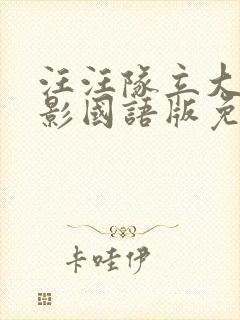 汪汪隊立大
影國語版免
卡哇伊